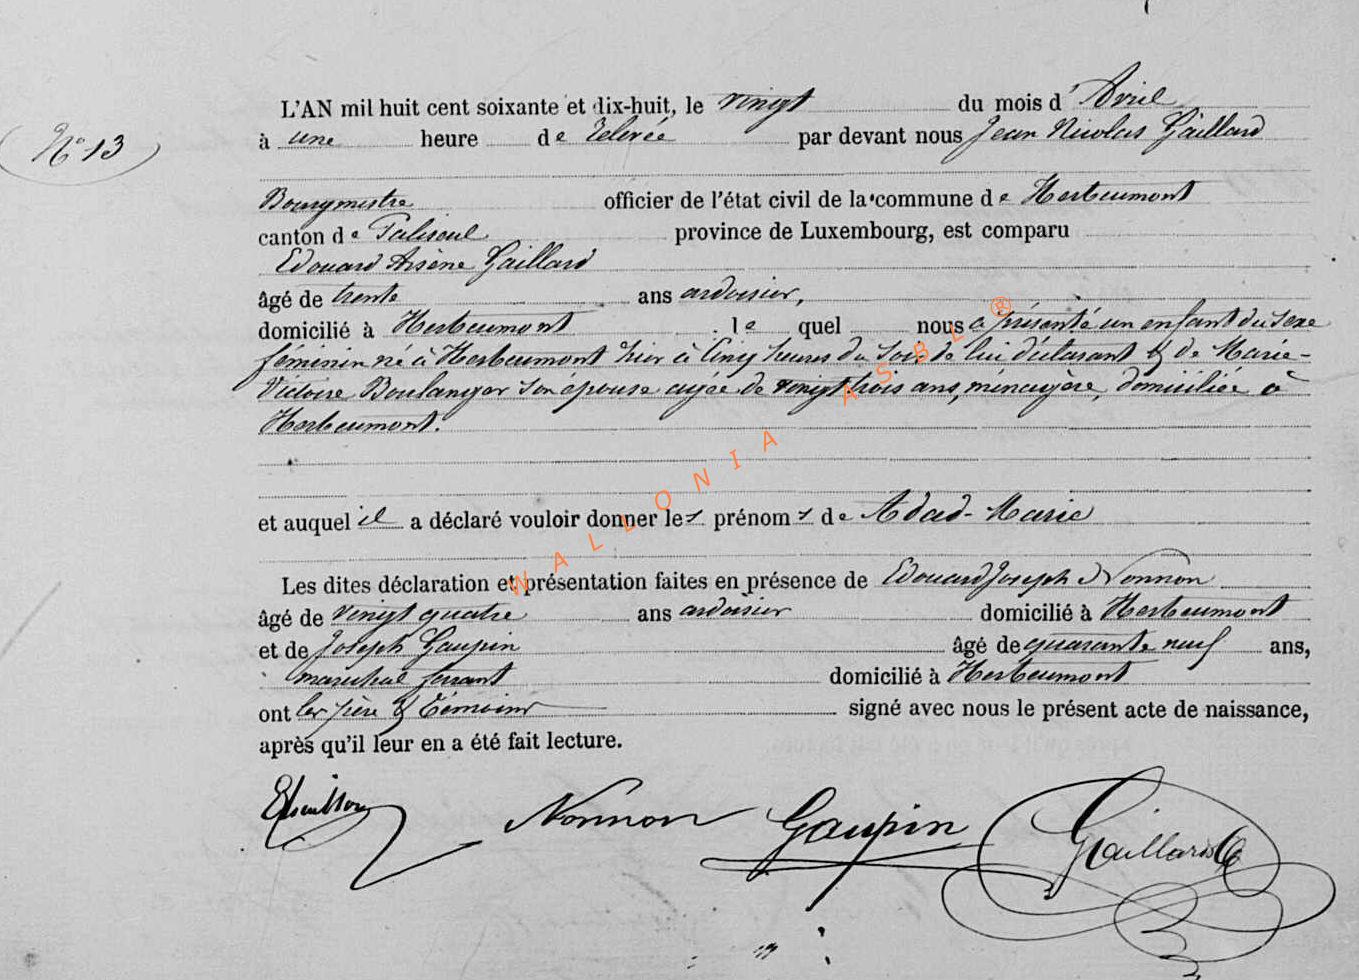 L'AN mil huit cent soixante et dix-huit, le vingt du mois d' Avril
N° 13
à une heure de relevée par devant nous Jean Nicolas Gaillard
Bourgmestre officier de l'état civil de la commune de Herbeumont
canton de Paliseul province de Luxembourg, est comparu
Edouard Arsène Gaillard
âgé de trente ans ardoisier,
domicilié à Herbeumont le quel nous a présenté un enfant du sexe
féminin né à Herbeumont hier à cinq heures du soir de lui déclarant & de Marie-
Victoire Boulanger son épouse agée de vingt trois ans, ménagère, domiciliée à
Herbeumont.
et auquel il a déclaré vouloir donner les prénoms de Adad-Marie
Les dites déclaration et présentation faites en présence de Edouard Joseph Nonnon
âgé de vingt quatre ans ardoisier domicilié à Herbeumont
et de Joseph Gaupin âgé de quarante neuf ans,
maréchal ferrant domicilié à Herbeumont
ont les père & témoins signé avec nous le présent acte de naissance,
après qu'il leur en a été fait lecture.
Nonnon Gaupin Gaillard
WALLONIA ASBL ®